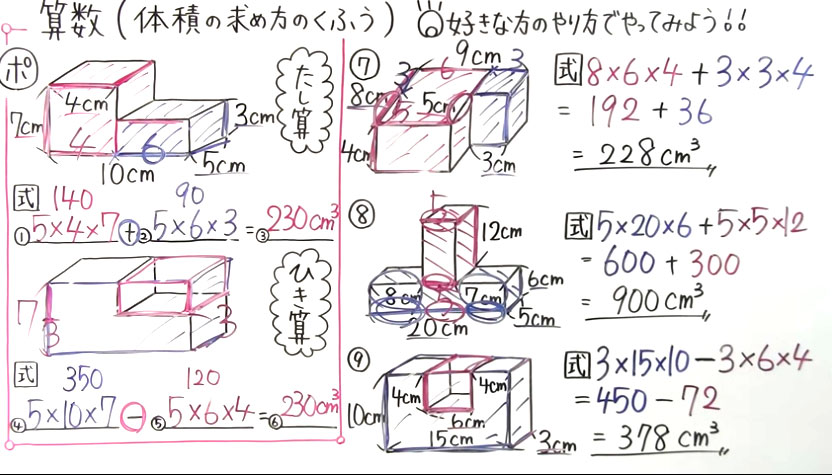 算数(体積の求め方のくふう) 好きな方のやり方でやってみよう!!
ポ
たし算
4cm
7cm
3cm
4
6
10cm
5cm
式 140 90
①5×4×7 + ②5×6×3 = ③230cm³
ひき算
7
3
3
式 350 120
④5×10×7 − ⑤5×6×4 = ⑥230cm³
⑦
9cm
3
6
3
8cm
5cm
5
4cm
3cm
式 8×6×4+3×3×4
= 192 + 36
= 228cm³
⑧
12cm
8cm
5
7cm
6cm
5cm
20cm
式 5×20×6+5×5×12
= 600 + 300
= 900cm³
⑨
4cm
4cm
10cm
6cm
15cm
3cm
式 3×15×10−3×6×4
= 450 − 72
= 378cm³